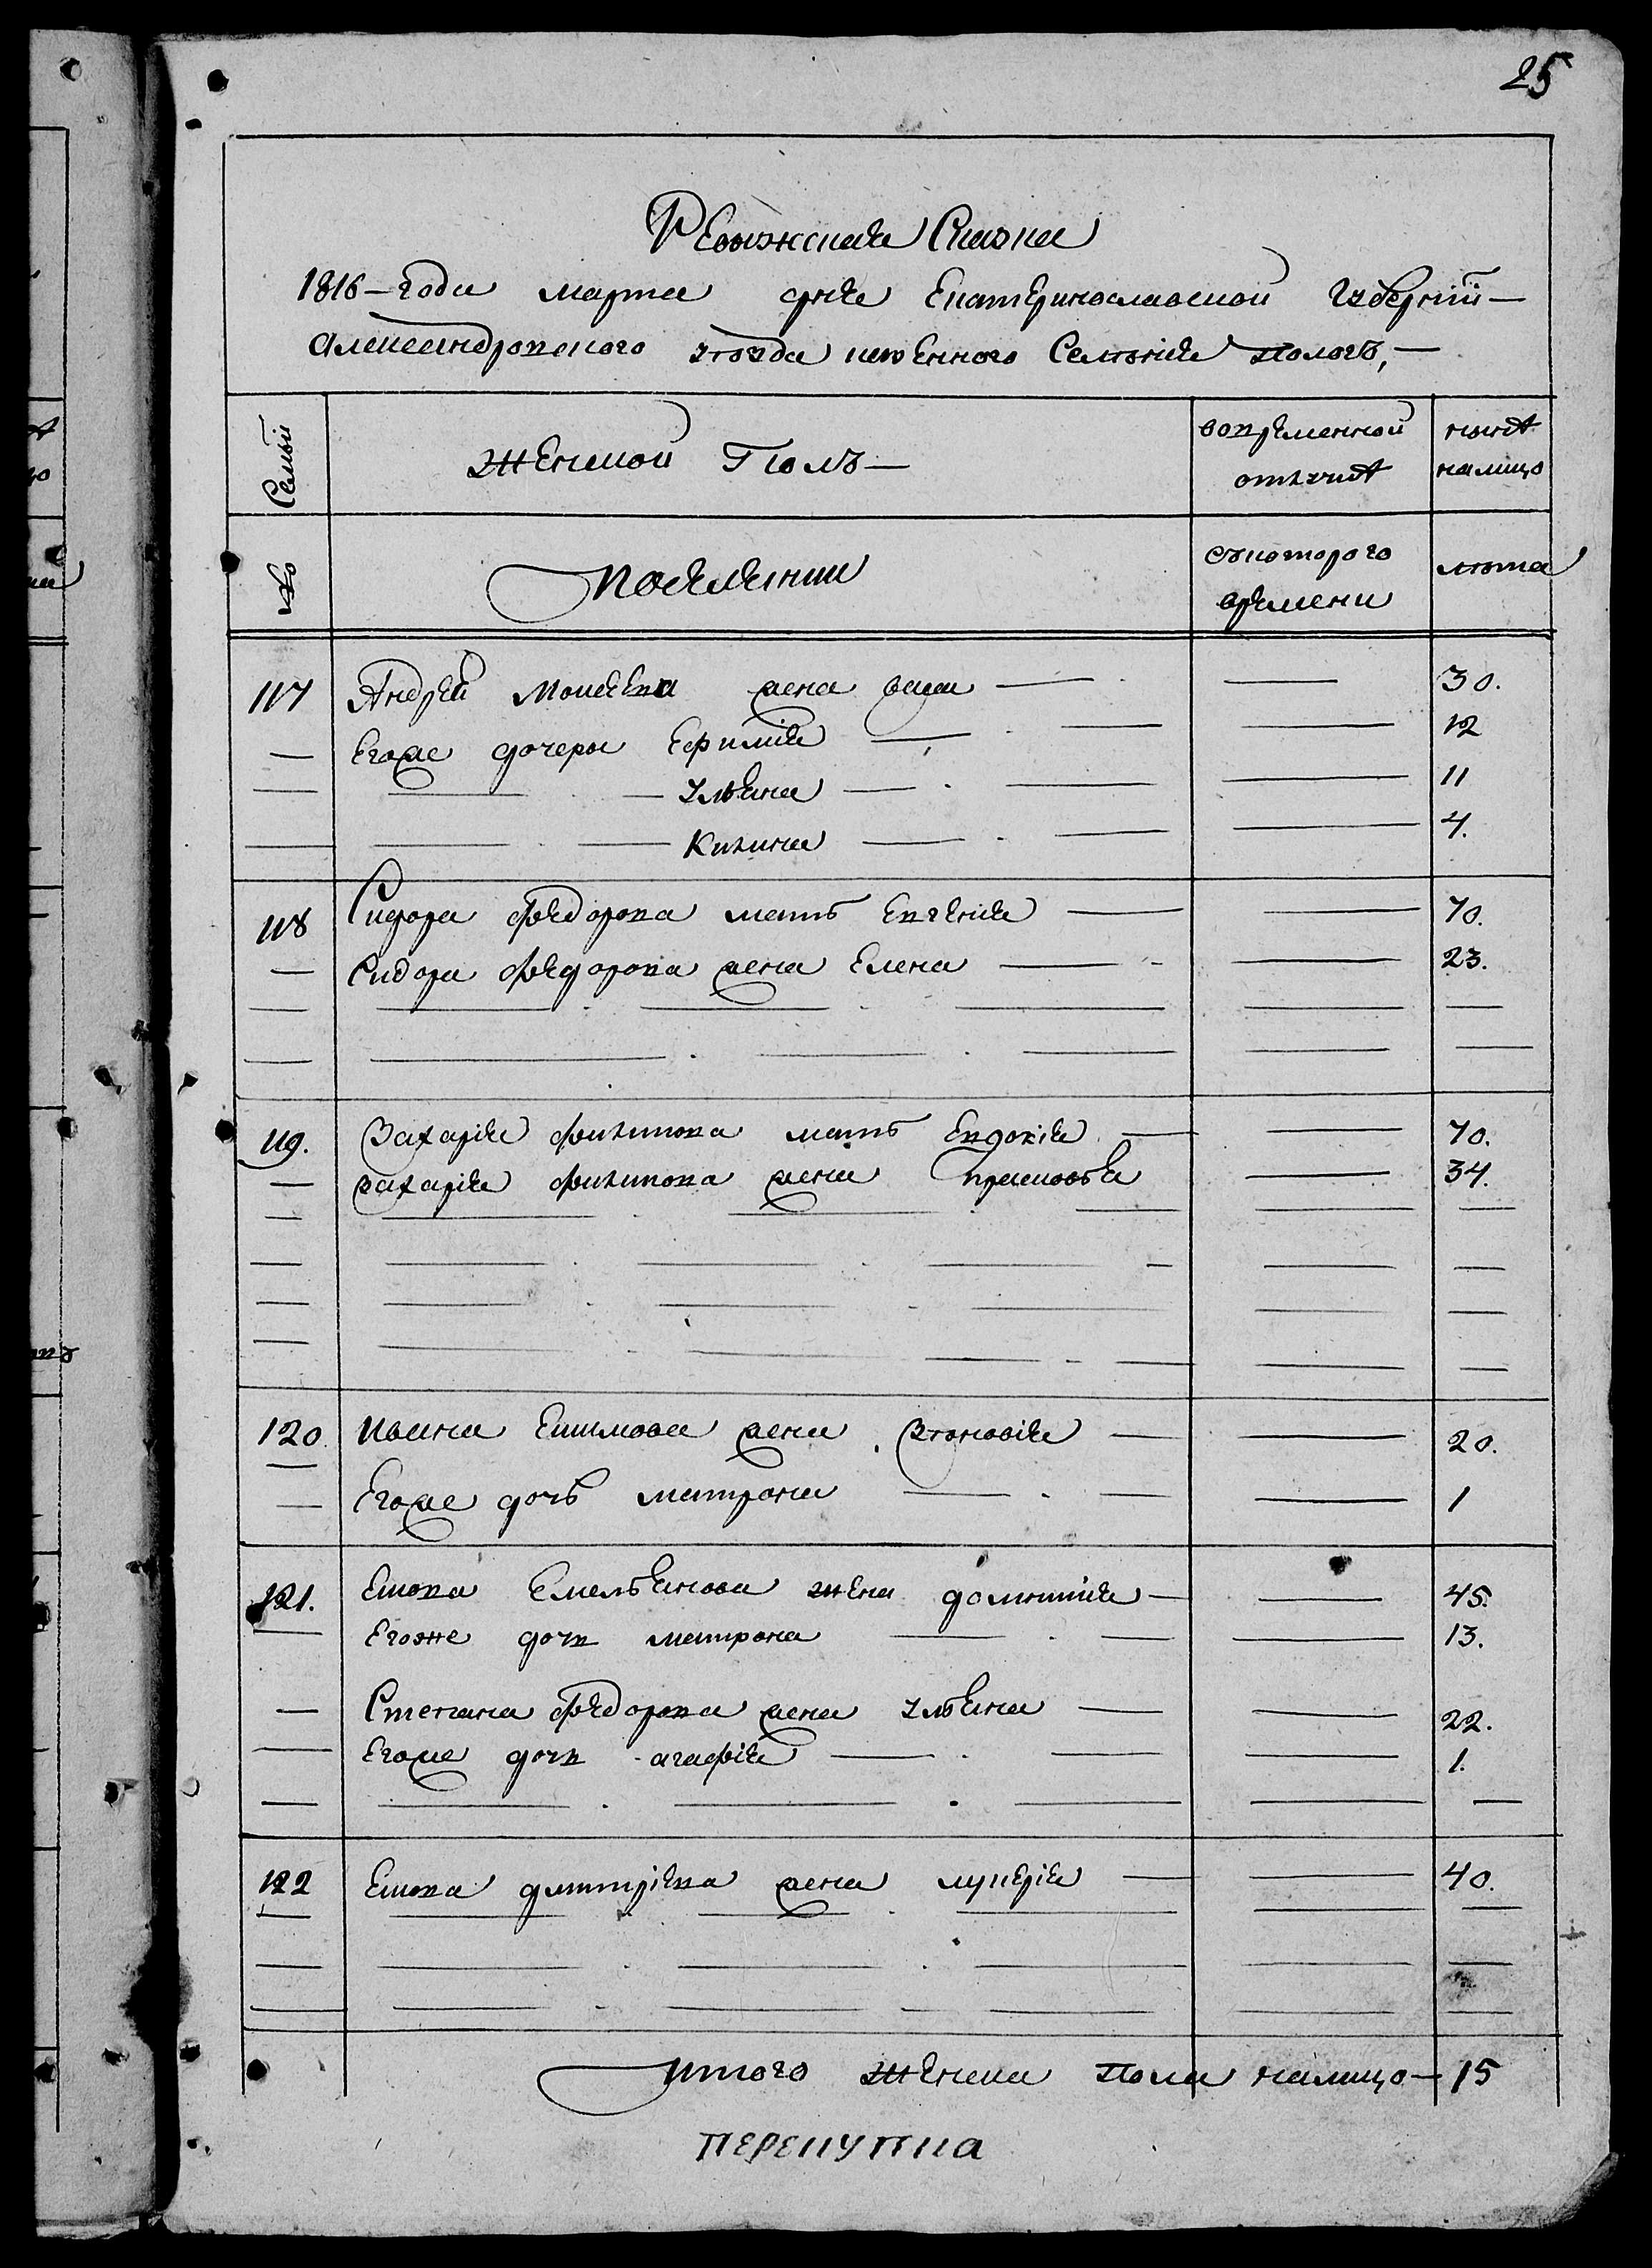 25
Ревижская Сказка
1816 – года марта дня Екатеринославской Губернїи –
Александровского уѣзда казенного Селѣния пологъ, –
Семьи
Женской Полъ –
вовременной отлучкѣ
нынѣ налицо
№
поселянки
скоторого времени
лѣта
117 Андрей Моисеева жена васа — — 30.
— Егоже дочеры Ефимия — — — 12
— — — Ульяна — — — 11
— — — Килина — — — 4.
118 Сидора Федорова мать Евгения — — 70.
— Сидора Федорова жена Елена — — 23.
119. Захария филипова мать Евдокия — — 70.
— Захария филипова жена Прасковья — 34.
120. Ивана Екимова жена Зѣновия — — 20.
— Егоже дочь матрона — — — 1
121. Емельянова жена домникия — — 45.
— Егоже доч матрона — — — 13.
— Степана Федорова жена Ульяна — — 22.
— Егоже доч агафия — — — 1.
122 дмитрїева жена лукерия — — 40.
Итого женска пола налицо — 15